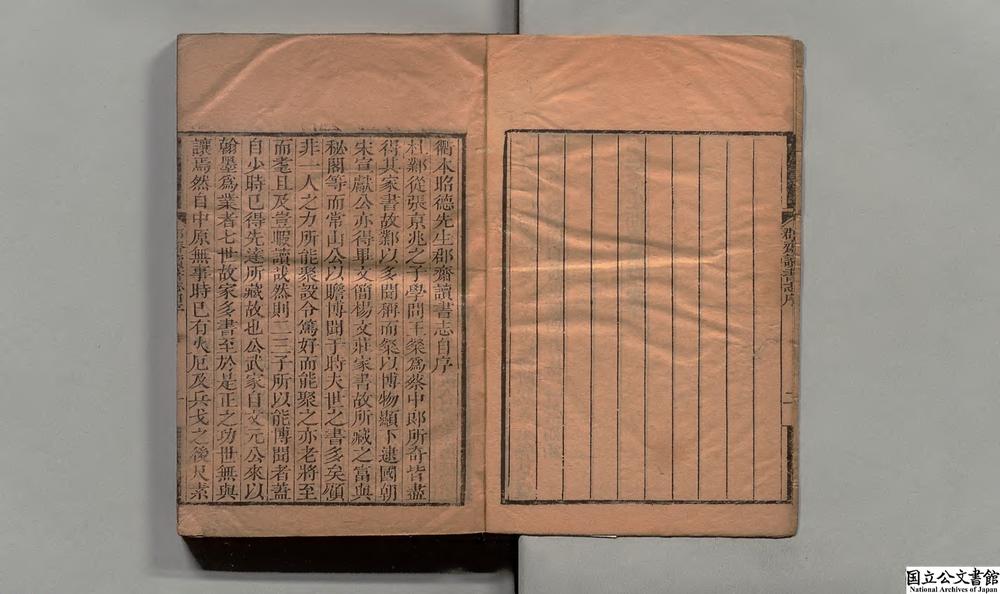 郡齋讀書志序
二
衢本昭德先生郡齋讀書志自序
杜鄴從張京兆之子學問王粲爲蔡中郎所奇皆盡
得其家書故鄴以多聞稱而粲以博物顯下逮國朝
宋宣獻公亦得畢文簡楊文莊家書故所藏之富與
秘閣等而常山公以贍博聞于時夫世之書多矣顧
非一人之力所能聚設令篤好而能聚之亦老將至
而耄且及豈暇讀哉然則二三子所以能博聞者蓋
自少時已得先達所藏故也公武家自文元公來以
翰墨爲業者七世故家多書至於是正之功世無與
讓焉然自中原無事時已有火厄及兵戈之後尺素
一
国立公文書館
National Archives of Japan